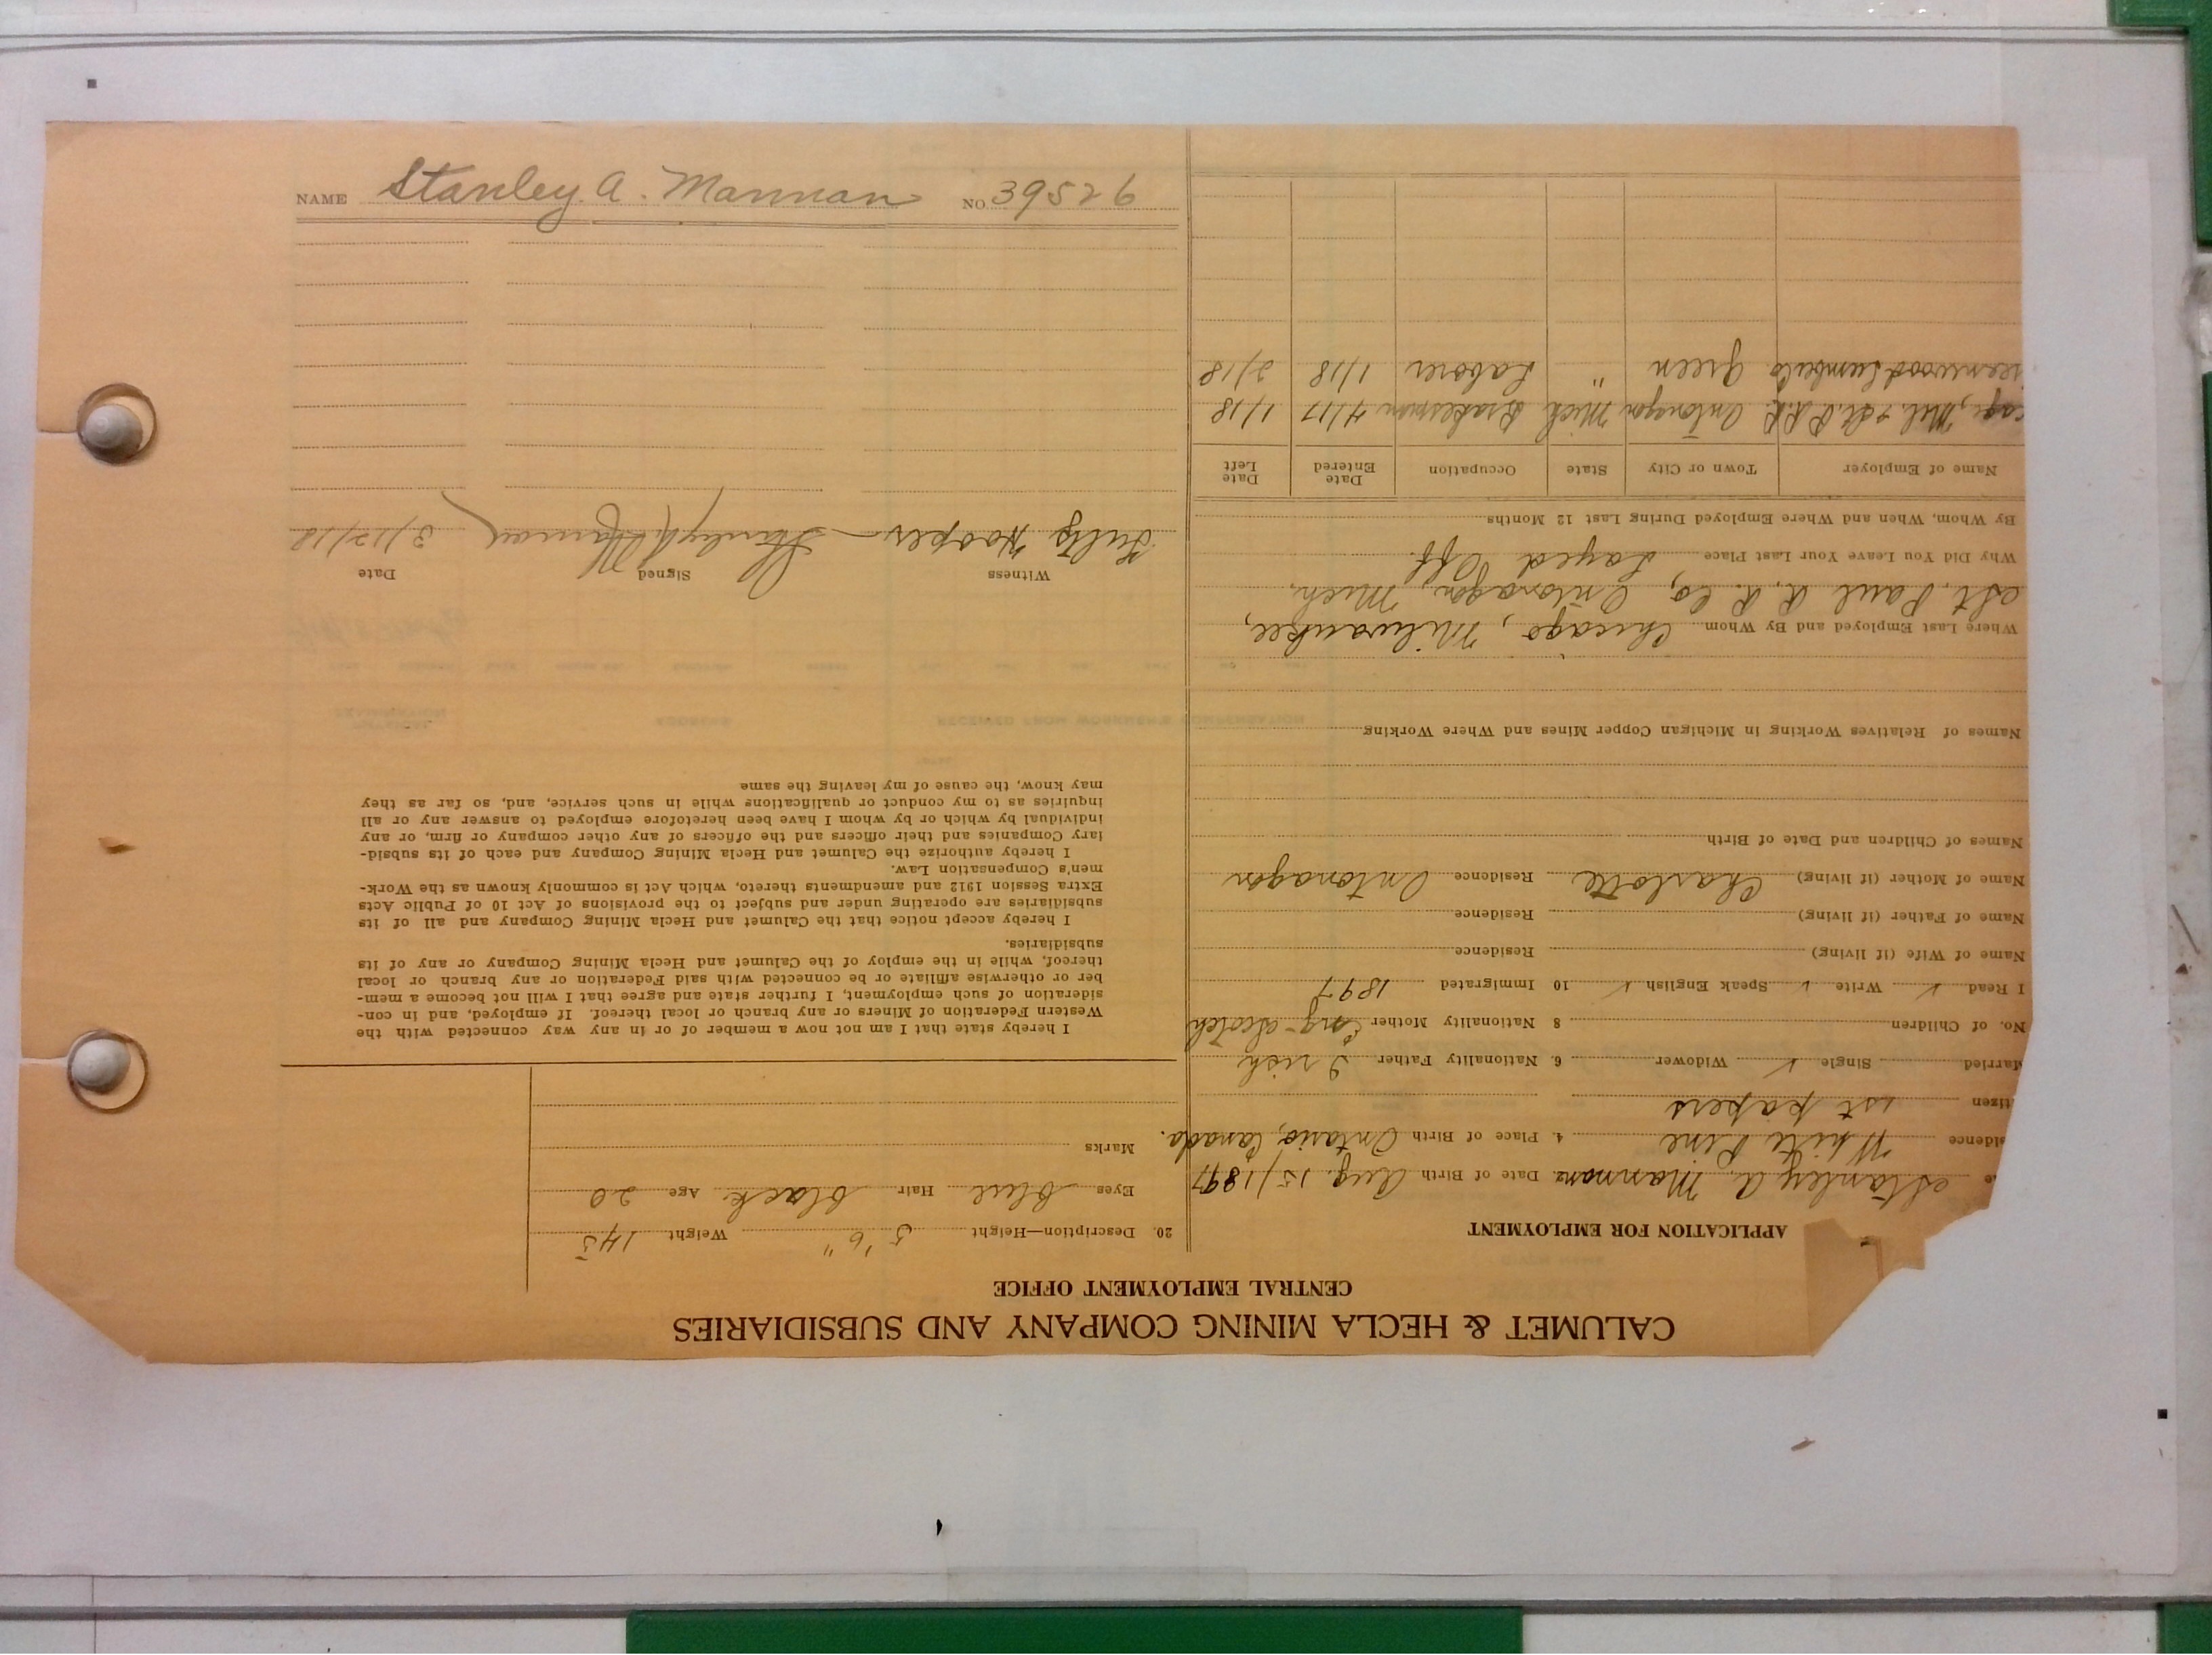 CALUMET & HECLA MINING COMPANY AND SUBSIDIARIES
CENTRAL EMPLOYMENT OFFICE
APPLICATION FOR EMPLOYMENT
Stanley A. Mannan 2. Date of Birth Aug. 15/1897
sidence White Pine 4. Place of Birth Ontario, Canada.
tizen 1st papers
Married Single ✓ Widower 6. Nationality Father Irish
No. of Children 8 Nationality Mother Eng-Scotch
I Read ✓ Write ✓ Speak English ✓ 10 Immigrated 1897
Name of Wife (if living) Residence
Name of Father (if living) Residence
Name of Mother (if living) Charlotte Residence Ontonagon
Names of Children and Date of Birth
Names of Relatives Working in Michigan Copper Mines and Where Working
Where Last Employed and By Whom Chicago, Milwaukee,
& St. Paul R. R. Co, Ontonagon, Mich.
Why Did You Leave Your Last Place Layed Off.
By Whom, When and Where Employed During Last 12 Months
Name of Employer Town or City State Occupation Date Entered Date Left
cago, Mil. & St. P. R.R. Ontonagon Mich Brakesman 4/17 1/18
eenwood Lumber Co Green " Laborer 1/18 2/18
20. Description—Height 5'6" Weight 145
Eyes Blue Hair Black Age 20
Marks
I hereby state that I am not now a member of or in any way connected with the
Western Federation of Miners or any branch or local thereof. If employed, and in con-
sideration of such employment, I further state and agree that I will not become a mem-
ber or otherwise affiliate or be connected with said Federation or any branch or local
thereof, while in the employ of the Calumet and Hecla Mining Company or any of its
subsidiaries.
I hereby accept notice that the Calumet and Hecla Mining Company and all of its
subsidiaries are operating under and subject to the provisions of Act 10 of Public Acts
Extra Session 1912 and amendments thereto, which Act is commonly known as the Work-
men's Compensation Law.
I hereby authorize the Calumet and Hecla Mining Company and each of its subsid-
iary Companies and their officers and the officers of any other company or firm, or any
individual by which or by whom I have been heretofore employed to answer any or all
inquiries as to my conduct or qualifications while in such service, and, so far as they
may know, the cause of my leaving the same
Witness Signed Date
Hooper Stanley A Mannan 3/12/18
NAME Stanley A. Mannan NO. 39526